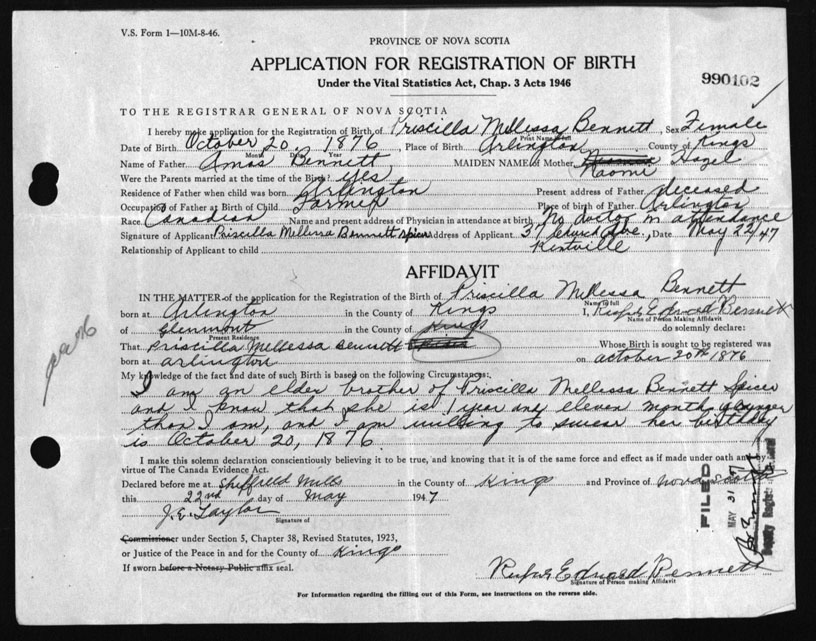 V.S. Form 1—10M-8-46.
PROVINCE OF NOVA SCOTIA
APPLICATION FOR REGISTRATION OF BIRTH
Under the Vital Statistics Act, Chap. 3 Acts 1946
990102
TO THE REGISTRAR GENERAL OF NOVA SCOTIA
I hereby make application for the Registration of Birth of Priscilla Mellessa Bennett, Sex Female
Print Name in full
Date of Birth October 20, 1876, Place of Birth Arlington County of Kings
Month Day Year
Name of Father Amos Bennett, MAIDEN NAME of Mother Naomi Hazel
Were the Parents married at the time of the Birth? yes
Residence of Father when child was born Arlington Present address of Father deceased
Occupation of Father at Birth of Child Farmer Place of birth of Father Arlington
Race Canadian Name and present address of Physician in attendance at birth No doctor in attendance
Signature of Applicant Priscilla Mellessa Bennett Spicer Address of Applicant 37 Church Ave., Date May 22/47
Relationship of Applicant to child Kentville
AFFIDAVIT
IN THE MATTER of the application for the Registration of Birth of Priscilla Mellessa Bennett
Name in full
born at Arlington in the County of Kings I, Rufus Edward Bennett
Name of Person Making Affidavit
of Glenmont of the County of Kings do solemnly declare:
Present Residence
That Priscilla Mellessa Bennett Spicer Whose Birth is sought to be registered was
born at arlington on october 20th 1876
My knowledge of the fact and date of such Birth is based on the following Circumstances:
I am an elder brother of Priscilla Mellessa Bennett Spicer
and I know that she is 1 year and eleven months younger
than I am, and I am willing to swear her birthday
is October 20, 1876
I make this solemn declaration concientiously believing it to be true, and knowing that it is of the same force and effect as if made under oath and by
virtue of The Canada Evidence Act.
Declared before me at Sheffield Mills in the County of Kings and Province of Nova Scotia
this 22nd day of May 1947
J. E. Taylor
Signature of
Commissioner under Section 5, Chapter 38, Revised Statutes, 1923,
or Justice of the Peace in and for the County of Kings
If sworn before a Notary Public affix seal.
Rufus Edward Bennett
Signature of Person making Affidavit
For Information regarding the filling out of this Form, see instructions on the reverse side.
FILED
MAY 31 47
Deputy Registrar General